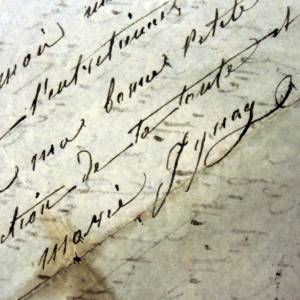 moi
l'entretiennes
ma bonne petite
ction de ta toute
marie